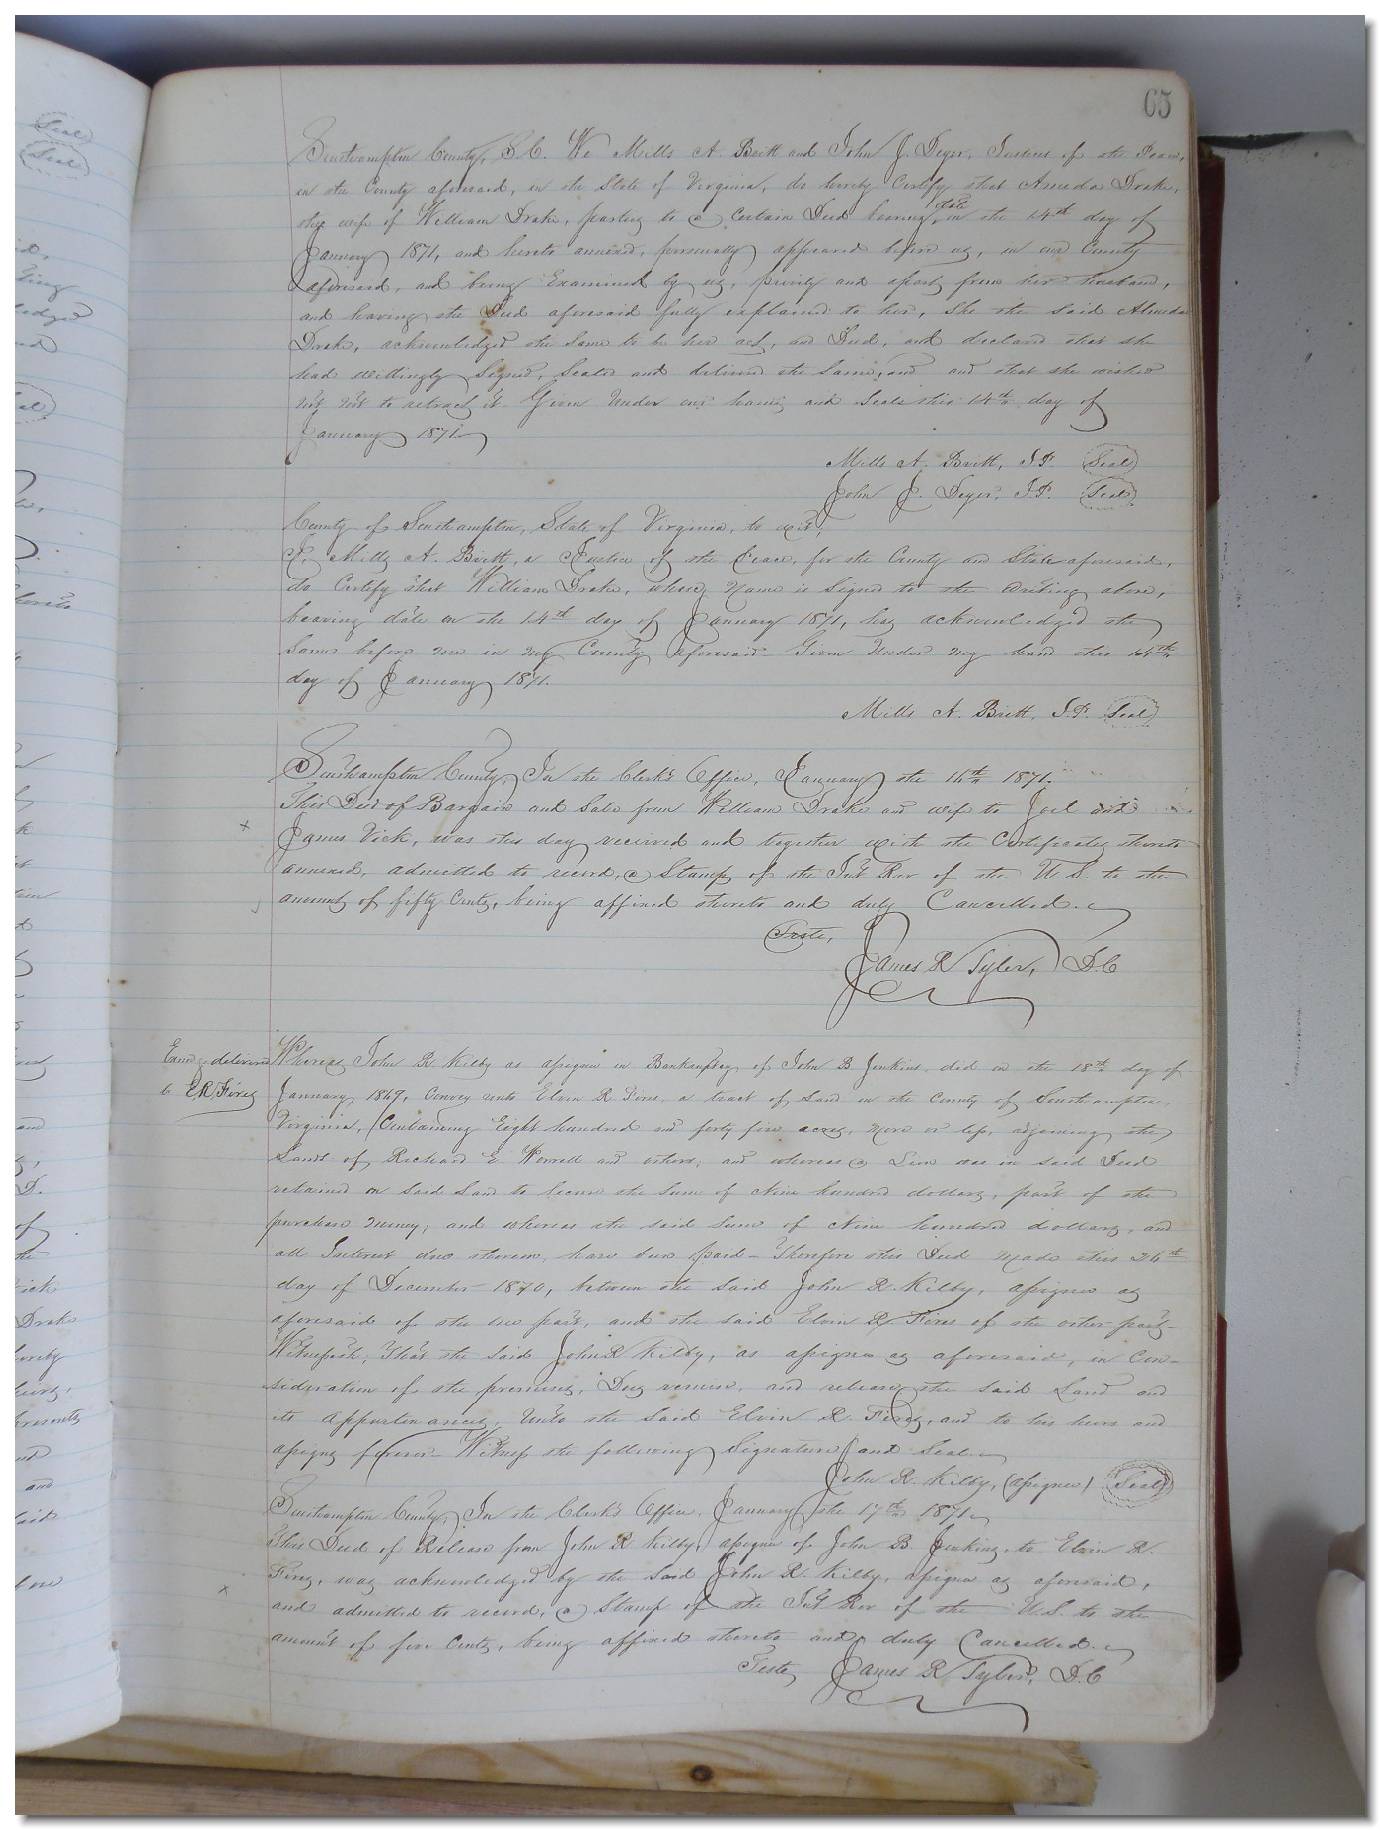 65
Southampton County, S.C. We Mills A. Britt and John J. Deyer, Justices of the Peace,
in the County aforesaid, in the State of Virginia, do hereby Certify that Almeda Drake,
the wife of William Drake, parties to a Certain Deed bearing date on the 14th day of
January 1871, and hereto annexed, personally appeared before us, in our County
aforesaid, and being Examined by us, privily and apart from her husband,
and having the Deed aforesaid fully explained to her, She the said Almeda
Drake, acknowledged the Same to be her act, and Deed, and declared that she
had willingly Signed, Sealed and delivered the Same, and and that she wished
not not to retract it. Given Under our hands and Seals this 14th day of
January 1871.
Mills A. Britt, J.P. (Seal)
John J. Deyer, J.P. (Seal)
County of Southampton, State of Virginia, to wit;
I, Mills A. Britt, a Justice of the Peace, for the County and State aforesaid,
do Certify that William Drake, whose Name is Signed to the Writing above,
bearing date on the 14th day of January 1871, has acknowledged the
Same before me in my County aforesaid. Given Under my hand this 14th
day of January 1871.
Mills A. Britt, J.P. (Seal)
Southampton County, In the Clerk's Office, January the 16th 1871.
This Deed of Bargain and Sale from William Drake and wife to Joel and
x James Vick, was this day received and together with the Certificates thereto
annexed, admitted to record, a Stamp of the Int Rev of the U.S. to the
amount of fifty Cents, being affixed thereto and duly Cancelled.
Teste,
James R Tyler, D.C
Exmd & delivered
to E R Fires
Whereas John R Kilby as assignee in Bankruptcy of John B Jenkins did on the 18th day of
January 1869, Convey unto Elvin R Fires, a tract of Land in the County of Southampton,
Virginia, Containing Eight hundred and forty five acres, more or less, adjoining the
Lands of Richard E Worrell and others, and whereas a Lien was in said Deed
retained on Said Land to Secure the Sum of Nine hundred dollars, part of the
purchase Money, and whereas the said Sum of Nine hundred dollars, and
all Interest due thereon, have been paid - Therefore this Deed made this 26th
day of December 1870, between the Said John R. Kilby, assignee as
aforesaid of the one part, and the said Elvin R Fires of the other part -
Witnesseth, That the Said John R Kilby, as assignee as aforesaid, in Con-
sideration of the premises, Does remise, and release the Said Land and
its appurtenances, Unto the Said Elvin R. Fires, and to his heirs and
assigns forever. Witness the following Signature and Seal.
John R. Kilby, (assignee) (Seal)
Southampton County, In the Clerk's Office, January the 17th 1871.
This Deed of Release from John R Kilby, assignee of John B. Jenkins to Elvin R.
x Fires, was acknowledged by the Said John R. Kilby, assignee as aforesaid,
and admitted to record, a Stamp of the Int Rev of the U.S. to the
amount of five Cents, being affixed thereto and duly Cancelled.
Teste, James R Tyler, D.C